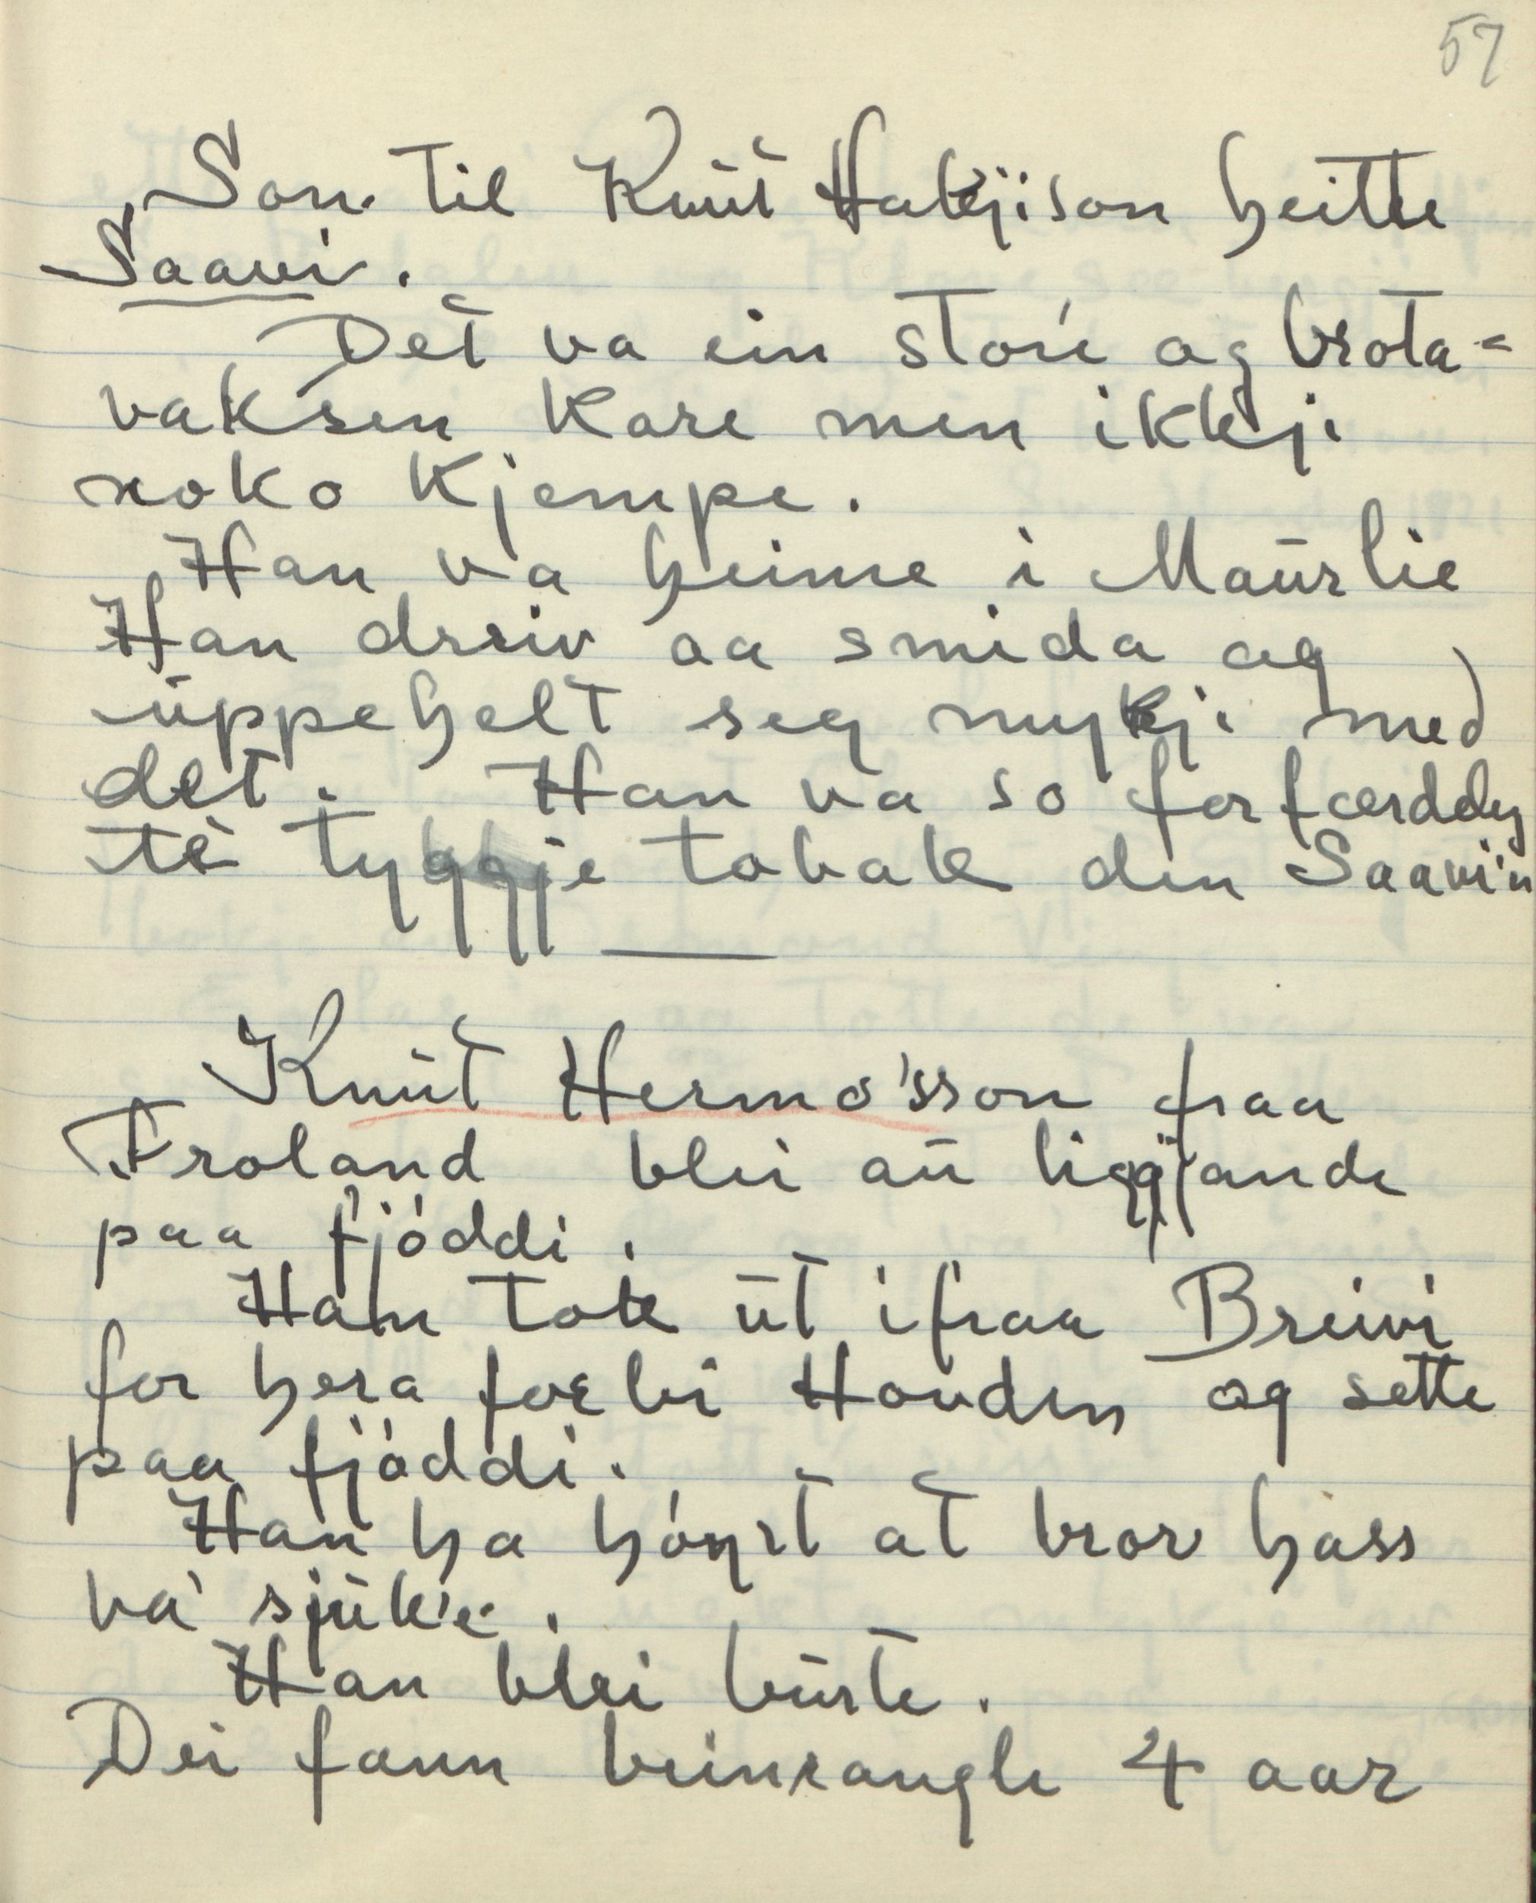 57
Son til Knut Hakjison heitte
Saavi.
Det va ein store og brota-
vaksen kare men ikkji
noko kjempe.
Han va heime i Maurlie
Han dreiv aa smida og
uppehelt seg mykji med
det. Han va so forfærdeleg
te tyggje tobak den Saavi'n
Knut Hermo'sson fraa
Froland blei au liggjande
paa fjóddi.
Han tok ut ifraa Breivi
for hera forbi Hovden og sette
paa fjóddi.
Han ha hóyrt at bror hass
va' sjuk'e.
Han blei burte.
Dei fann beinrangle 4 aar